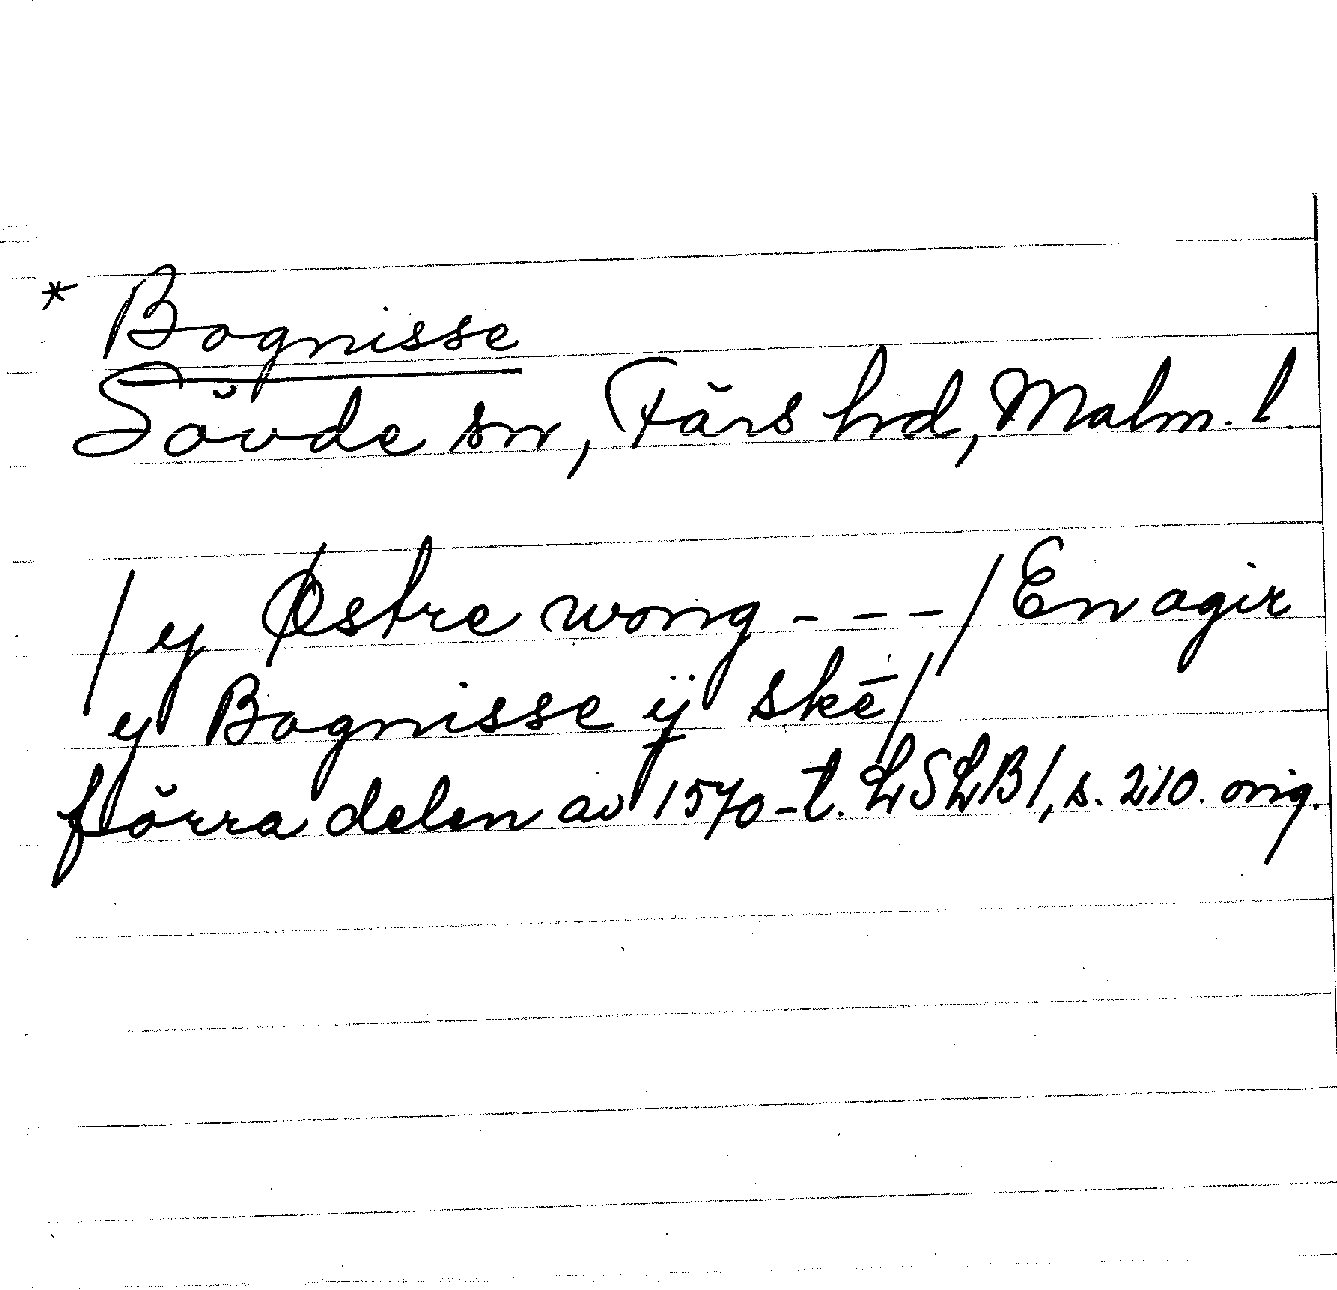 * Bognisse
Sövde sn, Färs hd, Malm. l.
/ y Østre wong - - - / En agir
y Bognisse ÿ skē /
förra delen av 1570-t. LSLB 1, s. 210. orig.